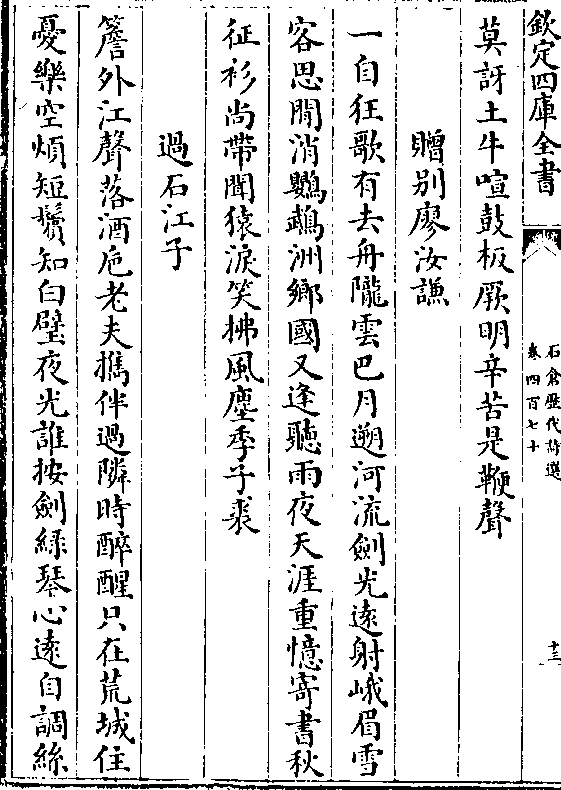 欽定四庫全書
石倉歷代詩選
卷四百七十
十三
莫訝土牛喧鼓板厥明辛苦是鞭聲
贈别廖汝謙
一自狂歌有去舟隴雲巴月遡河流劍光遠射峨眉雪
容思閒消鸚鵡洲鄉國又逢聽雨夜天涯重憶寄書秋
征衫尚帶聞猿淚笑拂風塵季子裘
過石江子
簷外江聲落酒巵老夫攜伴過隣時醉醒只在荒城住
憂樂空煩短鬢知白璧夜光誰按劍緑琴心遠自調絲